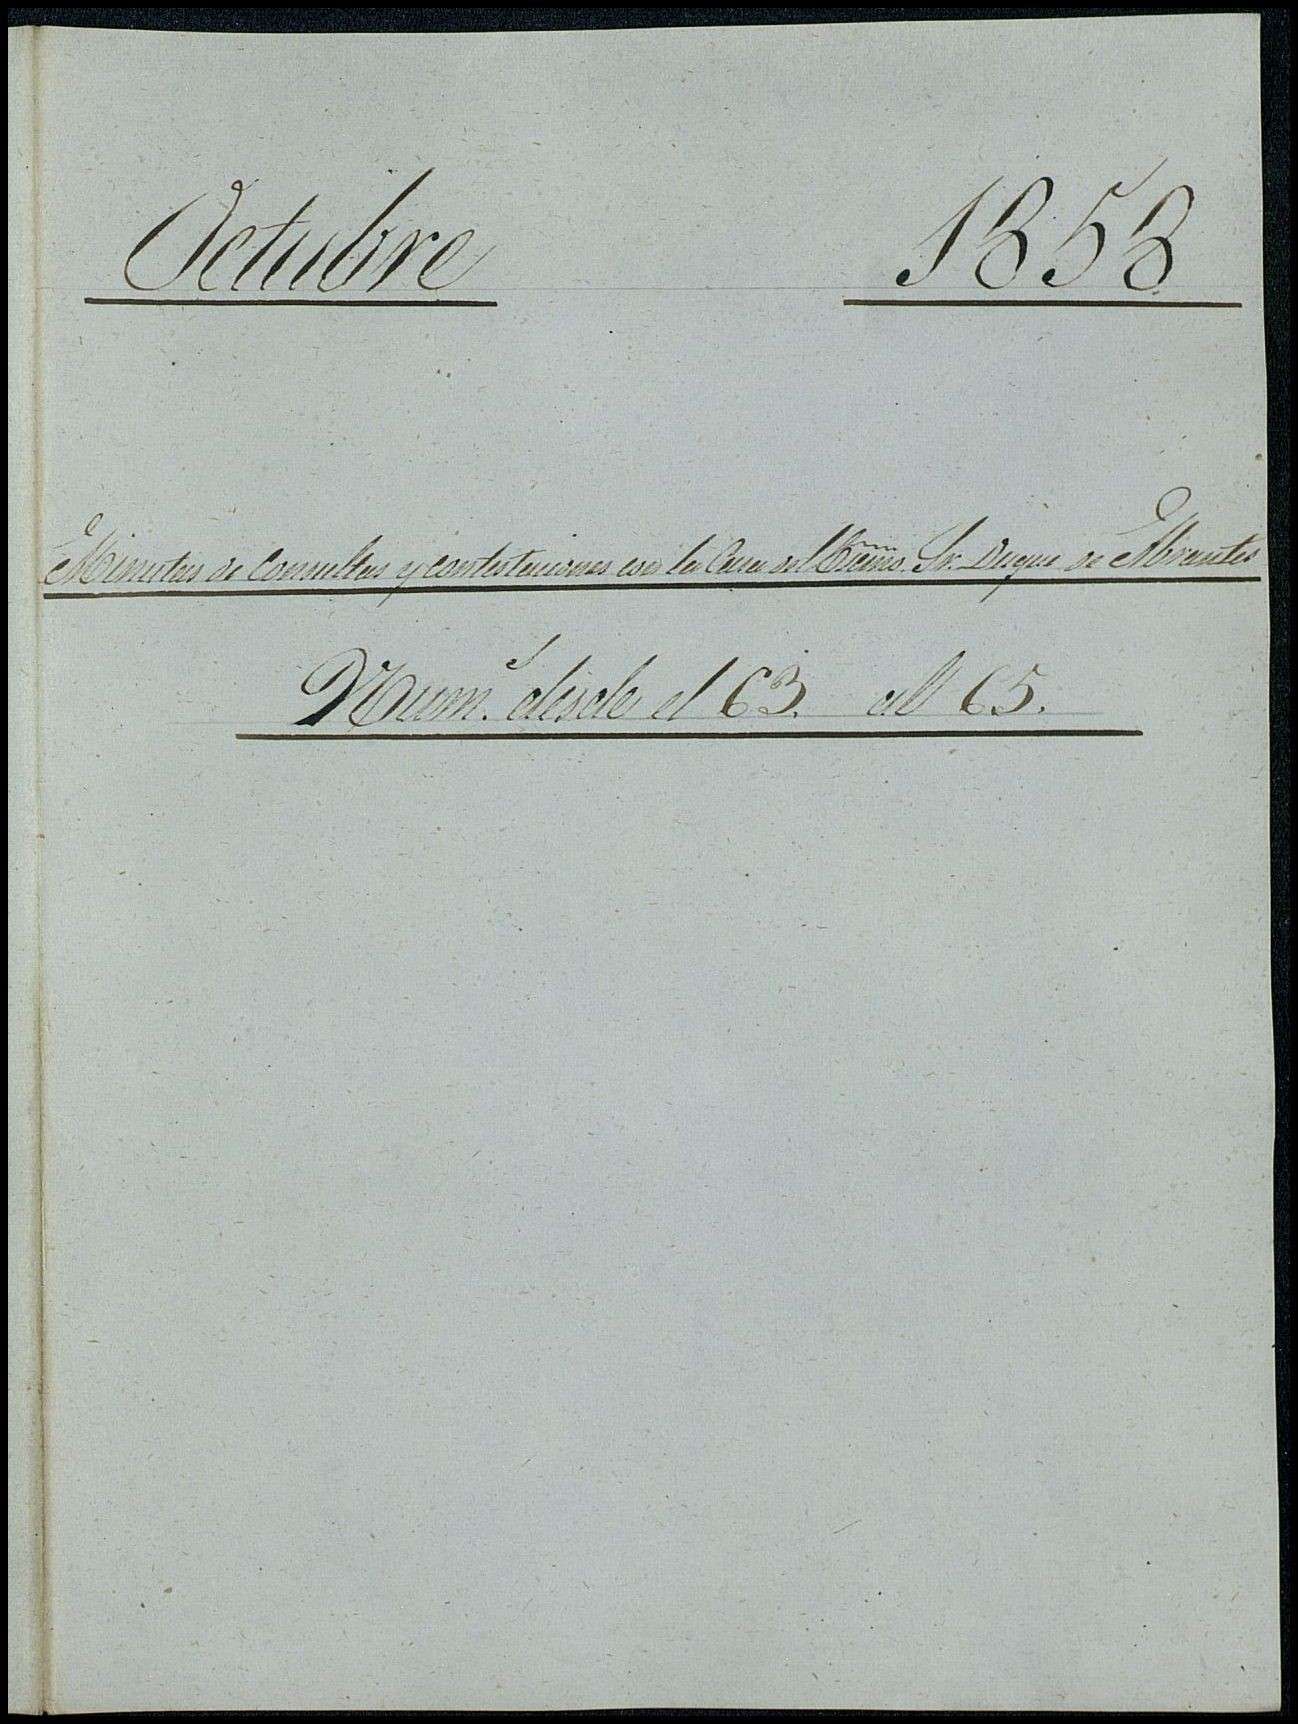 Octubre 1858
Minutas de Consultas y contestaciones en la Casa del Excmo. Sr. Duque de Abrantes
Num.s desde el 63. al 65.